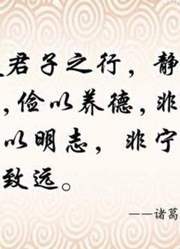 君子之行，静
，俭以养德，非
以明志，非宁
致远。
——诸葛